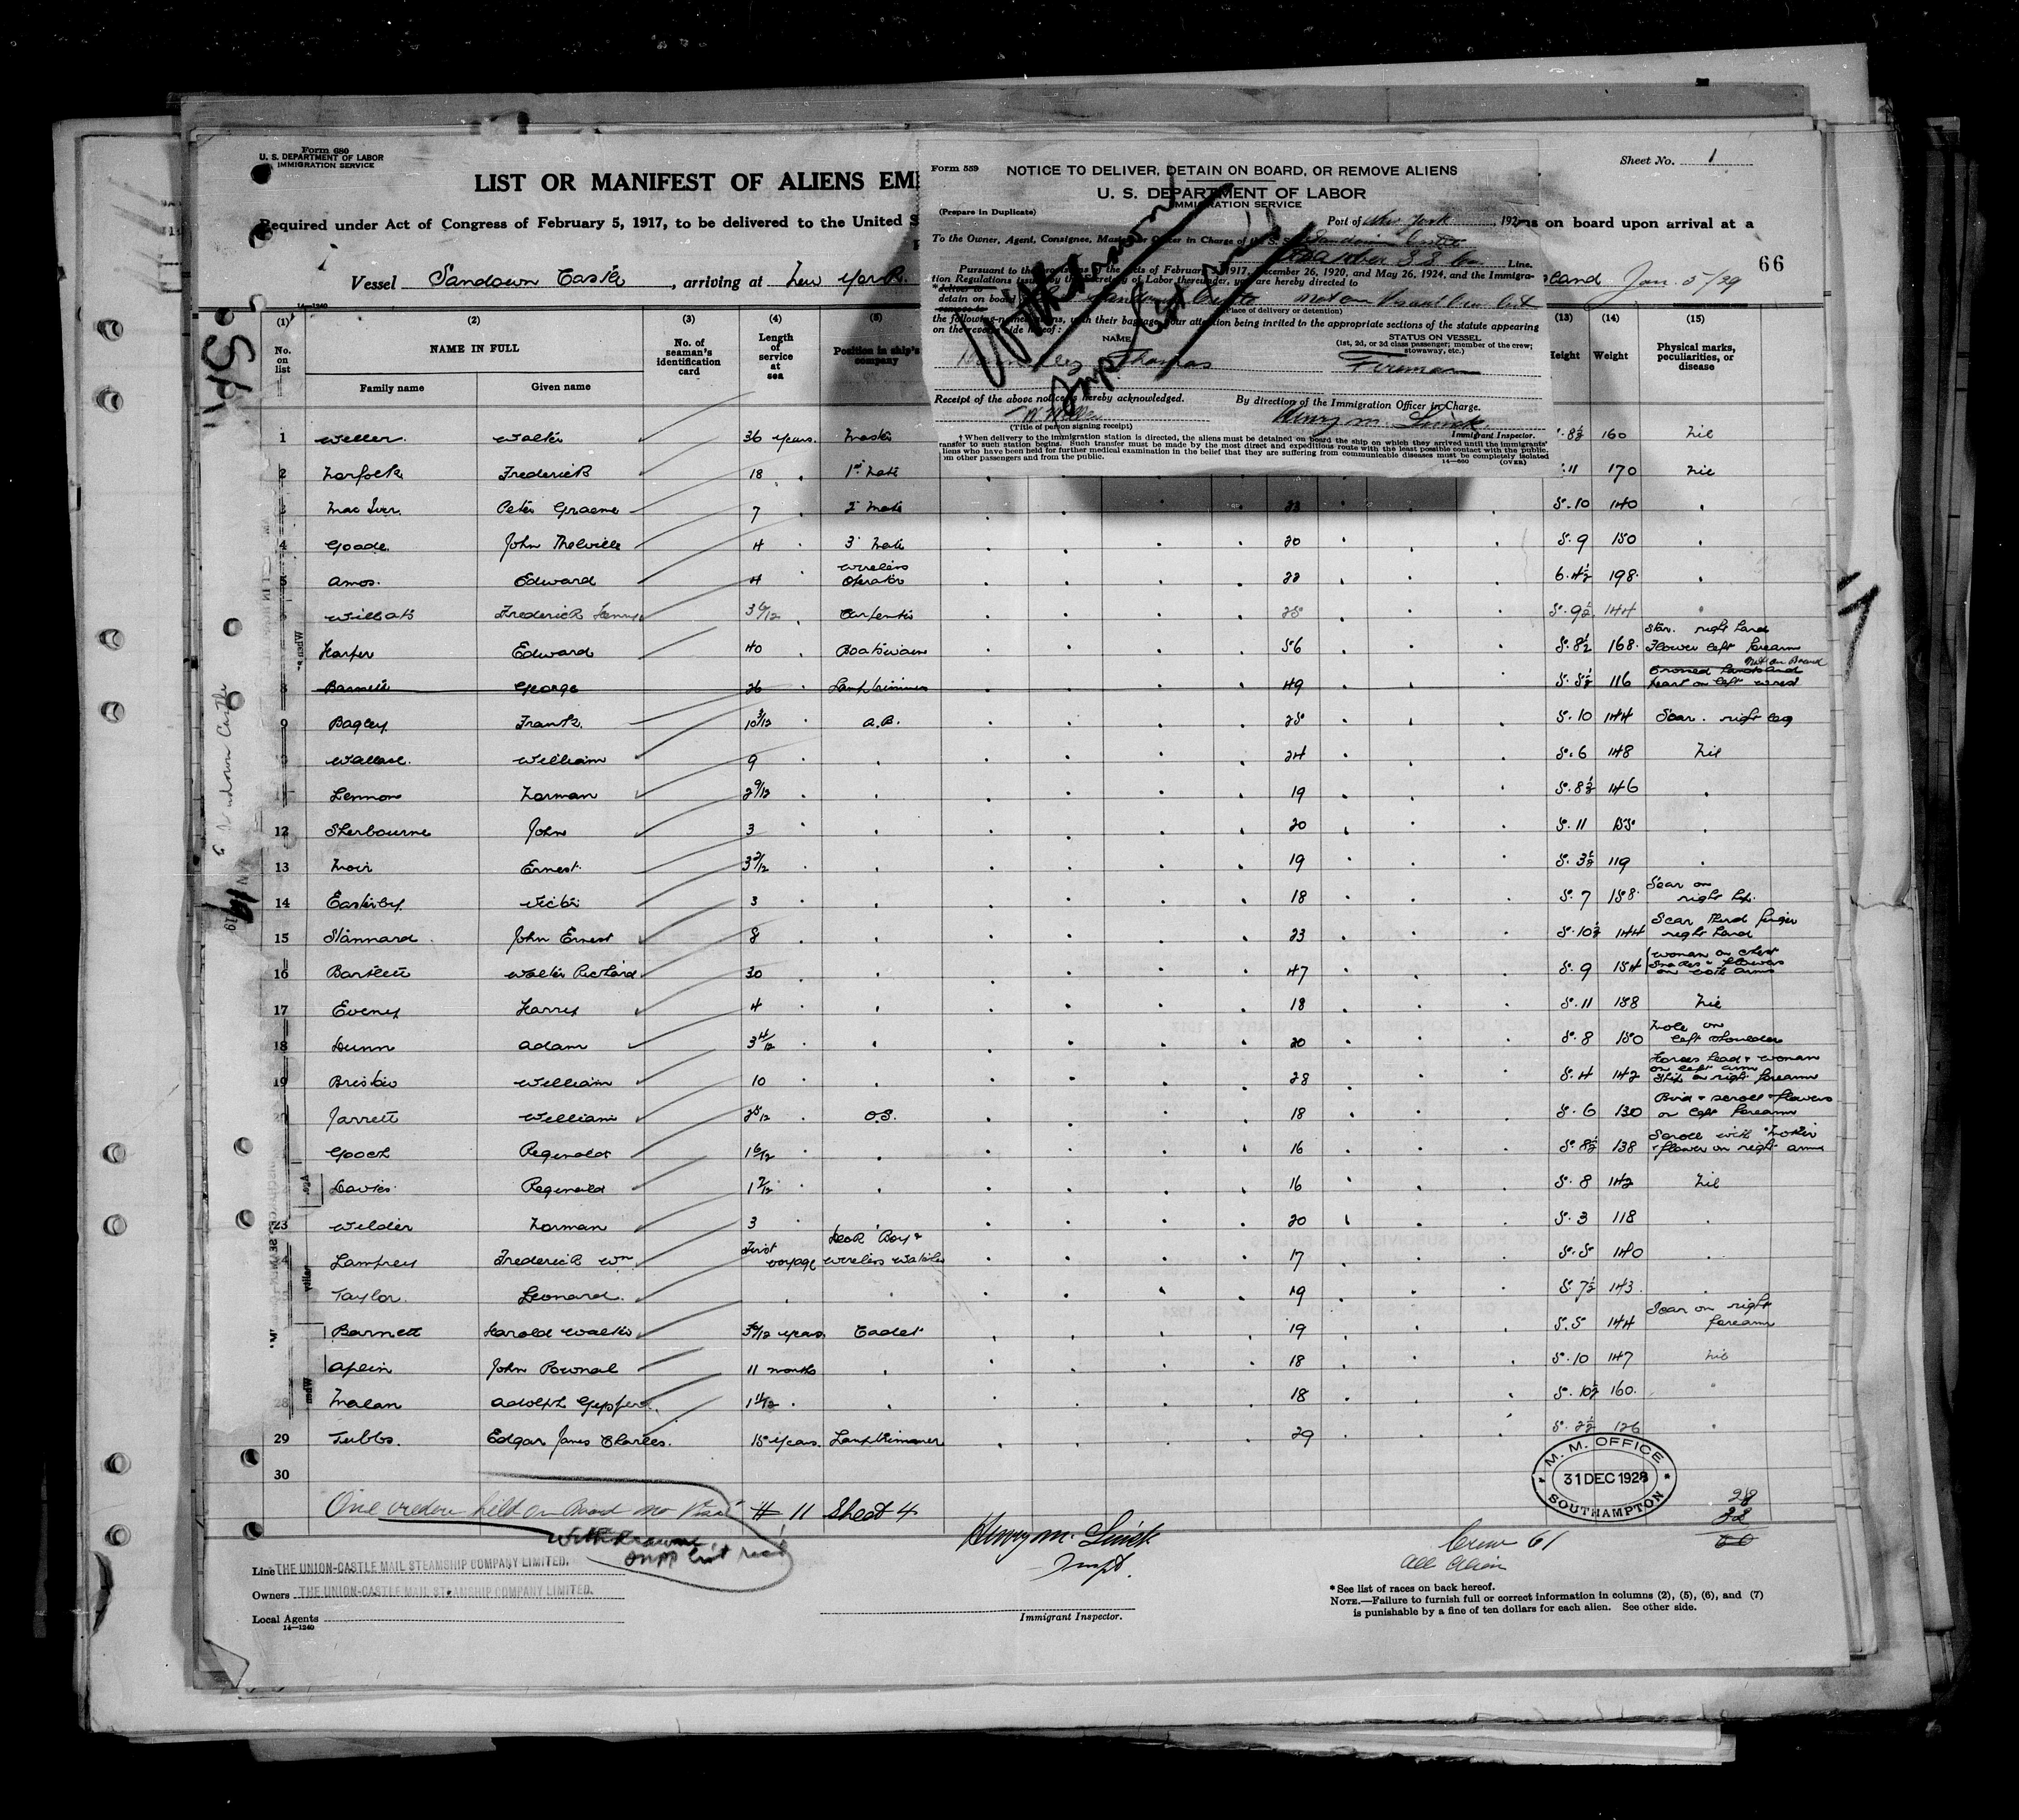 Form 680
U. S. DEPARTMENT OF LABOR
IMMIGRATION SERVICE
Sheet No. 1
LIST OR MANIFEST OF ALIENS EM
Required under Act of Congress of February 5, 1917, to be delivered to the United S
ns on board upon arrival at a
66
Vessel Sandown Castle, arriving at New York
Jan. 5/29
14—1240
Form 559
NOTICE TO DELIVER, DETAIN ON BOARD, OR REMOVE ALIENS
U. S. DEPARTMENT OF LABOR
IMMIGRATION SERVICE
(Prepare in Duplicate)
Port of New York, 192
To the Owner, Agent, Consignee, Master or Officer in Charge of the S. S. Sandown Castle
Line.
Pursuant to the provisions of the acts of February 5, 1917, December 26, 1920, and May 26, 1924, and the Immigra-
tion Regulations issued by the Secretary of Labor thereunder, you are hereby directed to
*deliver to
detain on board
remove to
(Place of delivery or detention)
the following-named aliens, with their baggage, your attention being invited to the appropriate sections of the statute appearing
on the reverse side hereof:
NAME
STATUS ON VESSEL
(1st, 2d, or 3d class passenger; member of the crew;
stowaway, etc.)
Thomas Fireman
Receipt of the above notice is hereby acknowledged.
By direction of the Immigration Officer in Charge.
Henry M.
(Title of person signing receipt)
Immigrant Inspector.
† When delivery to the immigration station is directed, the aliens must be detained on board the ship on which they arrived until the immigrants'
ransfer to such station begins. Such transfer must be made by the most direct and expeditious route with the least possible contact with the public.
liens who have been held for further medical examination in the belief that they are suffering from communicable diseases must be completely isolated
om other passengers and from the public.
14—600 (OVER)
(1) (2) (3) (4) (5) (13) (14) (15)
No. on list
NAME IN FULL
Family name Given name
No. of seaman's identification card
Length of service at sea
Position in ship's company
Height Weight
Physical marks, peculiarities, or disease
1 Weller Walter 36 years. Master 8½ 160 Nil
2 Norfolk Frederick 18 1st Mate 11 170 Nil
3 Mac Iver Peter Graeme 7 2 Mate 5.10 140
4 Goode John Thelville 4 3 Mate 20 5.9 150
5 Amos. Edward 4 Wireless Operator 22 6.4½ 198
Willats Frederick Henry 3 6/12 Carpenter 25 5.9½ 144
Harper Edward 40 Boatswain 56 5.8½ 168 Star. right hand Flower left forearm
8 Barnett George 26 Lamptrimmer 49 5.5½ 116 Not on Board Crossed hands and heart on left wrist
9 Bagley Frank 10 3/12 A.B. 25 5.10 144 Scar. right leg
Wallace William 9 24 5.6 148 Nil
Lennox Norman 2 9/12 19 5.8½ 146
12 Sherbourne John 3 20 5.11 155
13 Moir Ernest 3 2/12 19 5.3½ 119
14 Easterby Victor 3 18 5.7 158 Scar on right hip.
15 Stannard John Ernest 8 23 5.10½ 144 Scar third finger right hand
16 Bartlett Walter Richard 30 47 5.9 154 Woman on chest Snakes & flowers on both arms
17 Eveney Harry 4 18 5.11 158 Nil
18 Dunn Adam 3 4/12 20 5.8 150 Mole on left shoulder
19 Bristow William 10 28 5.4 142 Horses head & woman on left arm Ship on right forearm
Jarrett William 2 5/12 O.S. 18 5.6 130 Bird & scroll & flowers on left forearm
Gooch Reginald 1 6/12 16 5.8½ 138 Scroll with "Mother" & flower on right arm
Davies Reginald 1 7/12 16 5.8 142 Nil
23 Wilder Norman 3 20 5.3 118
24 Lamprey Frederick Wm First voyage Deck Boy & Wireless Watcher 17 5.5 140
Taylor Leonard 19 5.7½ 143
Barnett Harold Walter 3 6/12 years Cadet 19 5.5 144 Scar on right forearm
Aplin John Bownal 11 months 18 5.10 147 Nil
28 Malan Adolph Gysbert 1 11/12 18 5.10½ 160
29 Tubbs. Edgar James Charles. 15 years. Lamptrimmer 29 5.2½ 126
30
M. M. OFFICE
31 DEC 1928
SOUTHAMPTON
One held on Board no Visa # 11 Sheet 4
Withdrawn
supp list recd
28
Henry M.
Inspt.
Crew 61
All Alien
Line THE UNION-CASTLE MAIL STEAMSHIP COMPANY LIMITED.
Owners THE UNION-CASTLE MAIL STEAMSHIP COMPANY LIMITED.
Local Agents
14—1240
Immigrant Inspector.
* See list of races on back hereof.
NOTE.—Failure to furnish full or correct information in columns (2), (5), (6), and (7)
is punishable by a fine of ten dollars for each alien. See other side.